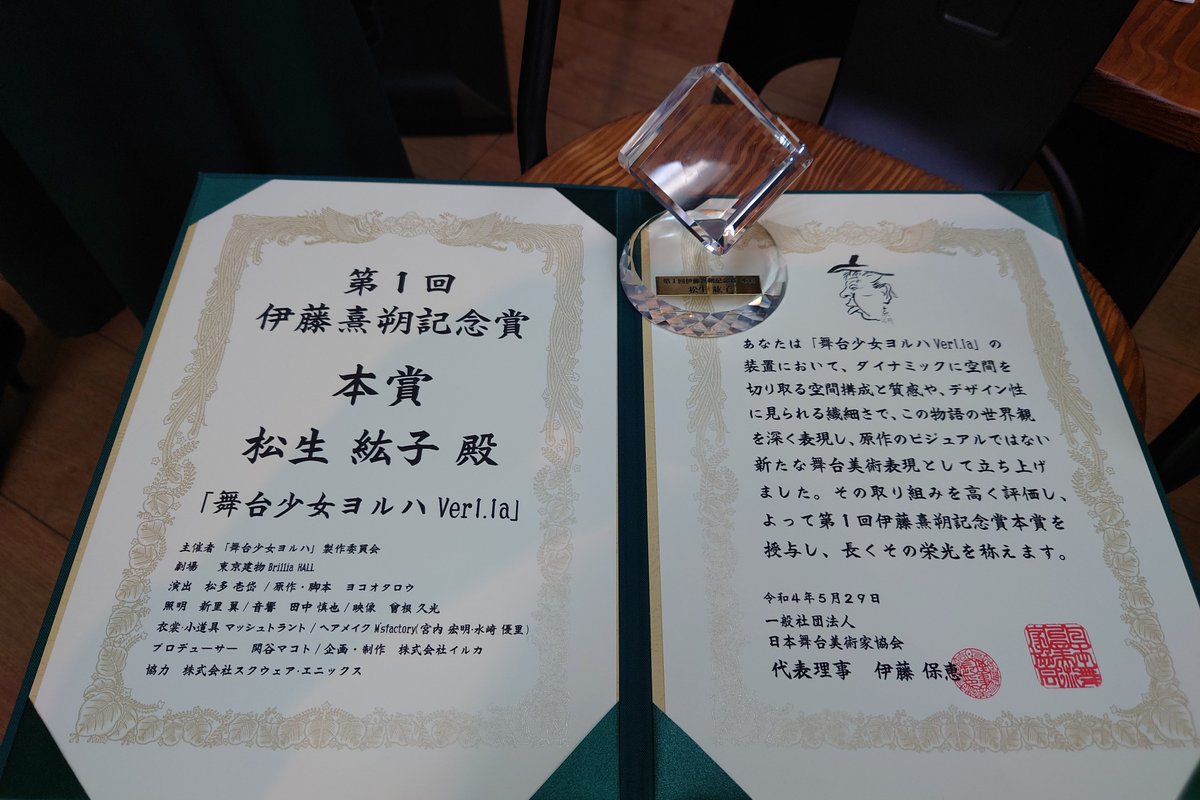 第1回
伊藤熹朔記念賞
本賞
松生 紘子 殿
「舞台少女ヨルハ Ver1.1a」
主催者 「舞台少女ヨルハ」製作委員会
劇場 東京建物 Brillia HALL
演出 松多 壱岱 / 原作・脚本 ヨコオタロウ
照明 新里 翼 / 音響 田中 慎也 / 映像 曾根 久光
衣裳・小道具 マッシュトラント / ヘアメイク M'sfactory(宮内 宏明・水崎 優里)
プロデューサー 関谷マコト / 企画・制作 株式会社イルカ
協力 株式会社スクウェア・エニックス
第1回伊藤熹朔記念賞
松生 紘子
あなたは「舞台少女ヨルハ Ver1.1a」の
装置において、ダイナミックに空間を
切り取る空間構成と質感や、デザイン性
に見られる繊細さで、この物語の世界観
を深く表現し、原作のビジュアルではない
新たな舞台美術表現として立ち上げ
ました。その取り組みを高く評価し、
よって第1回伊藤熹朔記念賞本賞を
授与し、長くその栄光を称えます。
令和4年5月29日
一般社団法人
日本舞台美術家協会
代表理事 伊藤 保恵